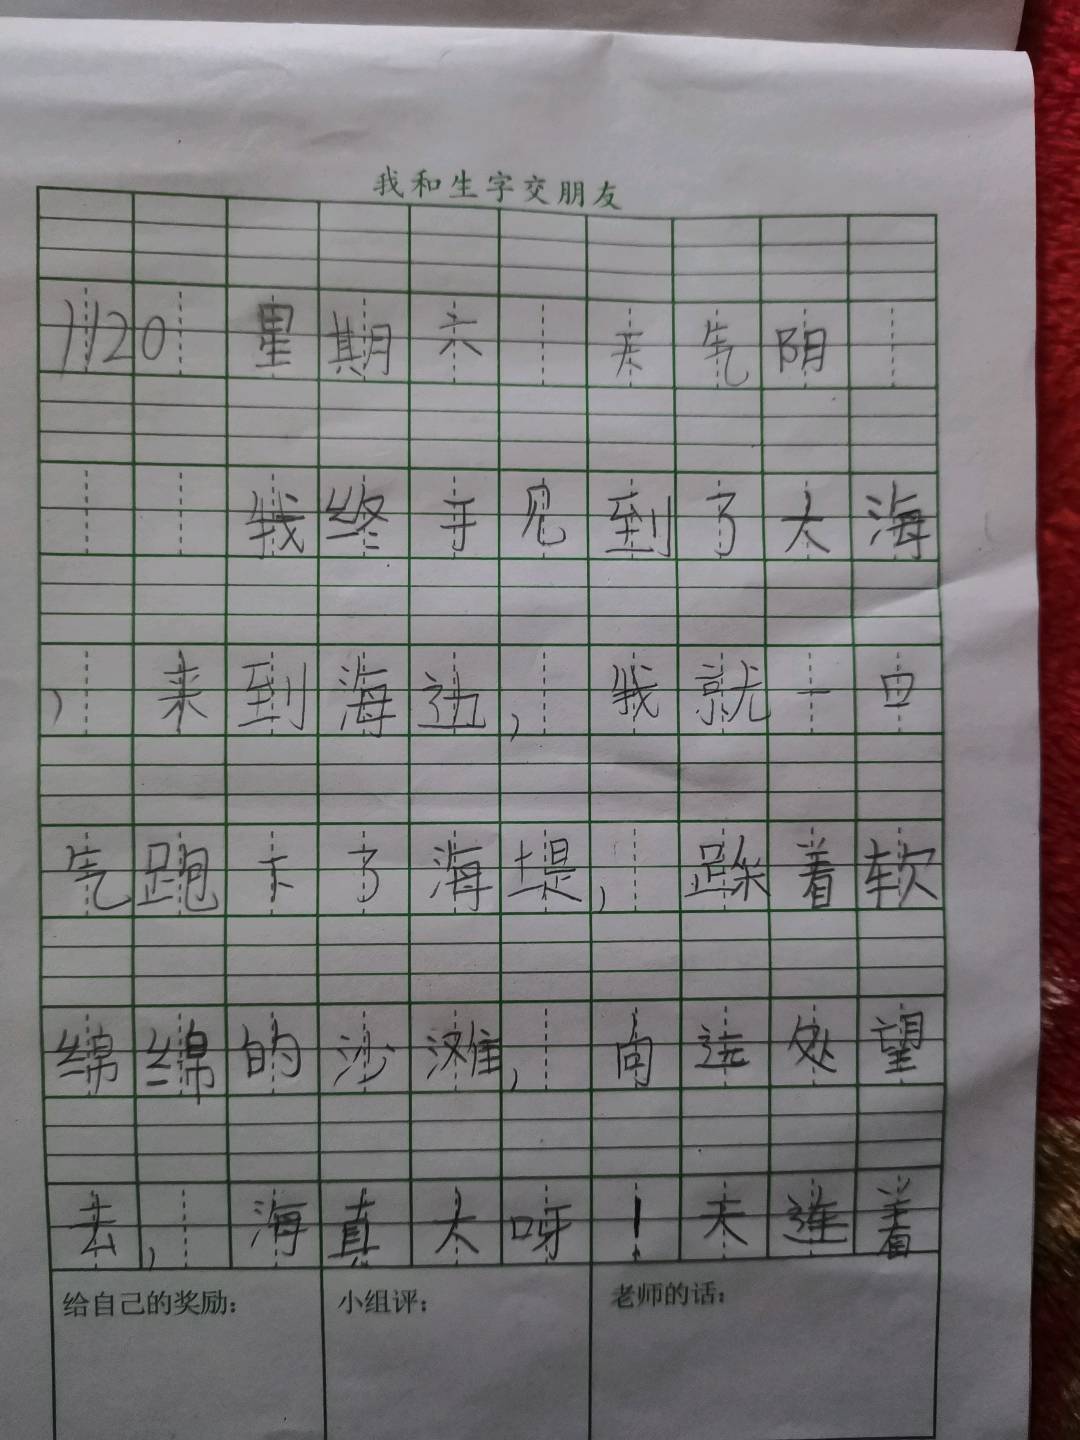 我和生字交朋友
1120 星期六 天气阴
我终于见到了大海
，来到海边，我就一口
气跑下了海堤，踩着软
绵绵的沙滩，向远处望
去，海真大呀！天连着
给自己的奖励： 小组评： 老师的话：